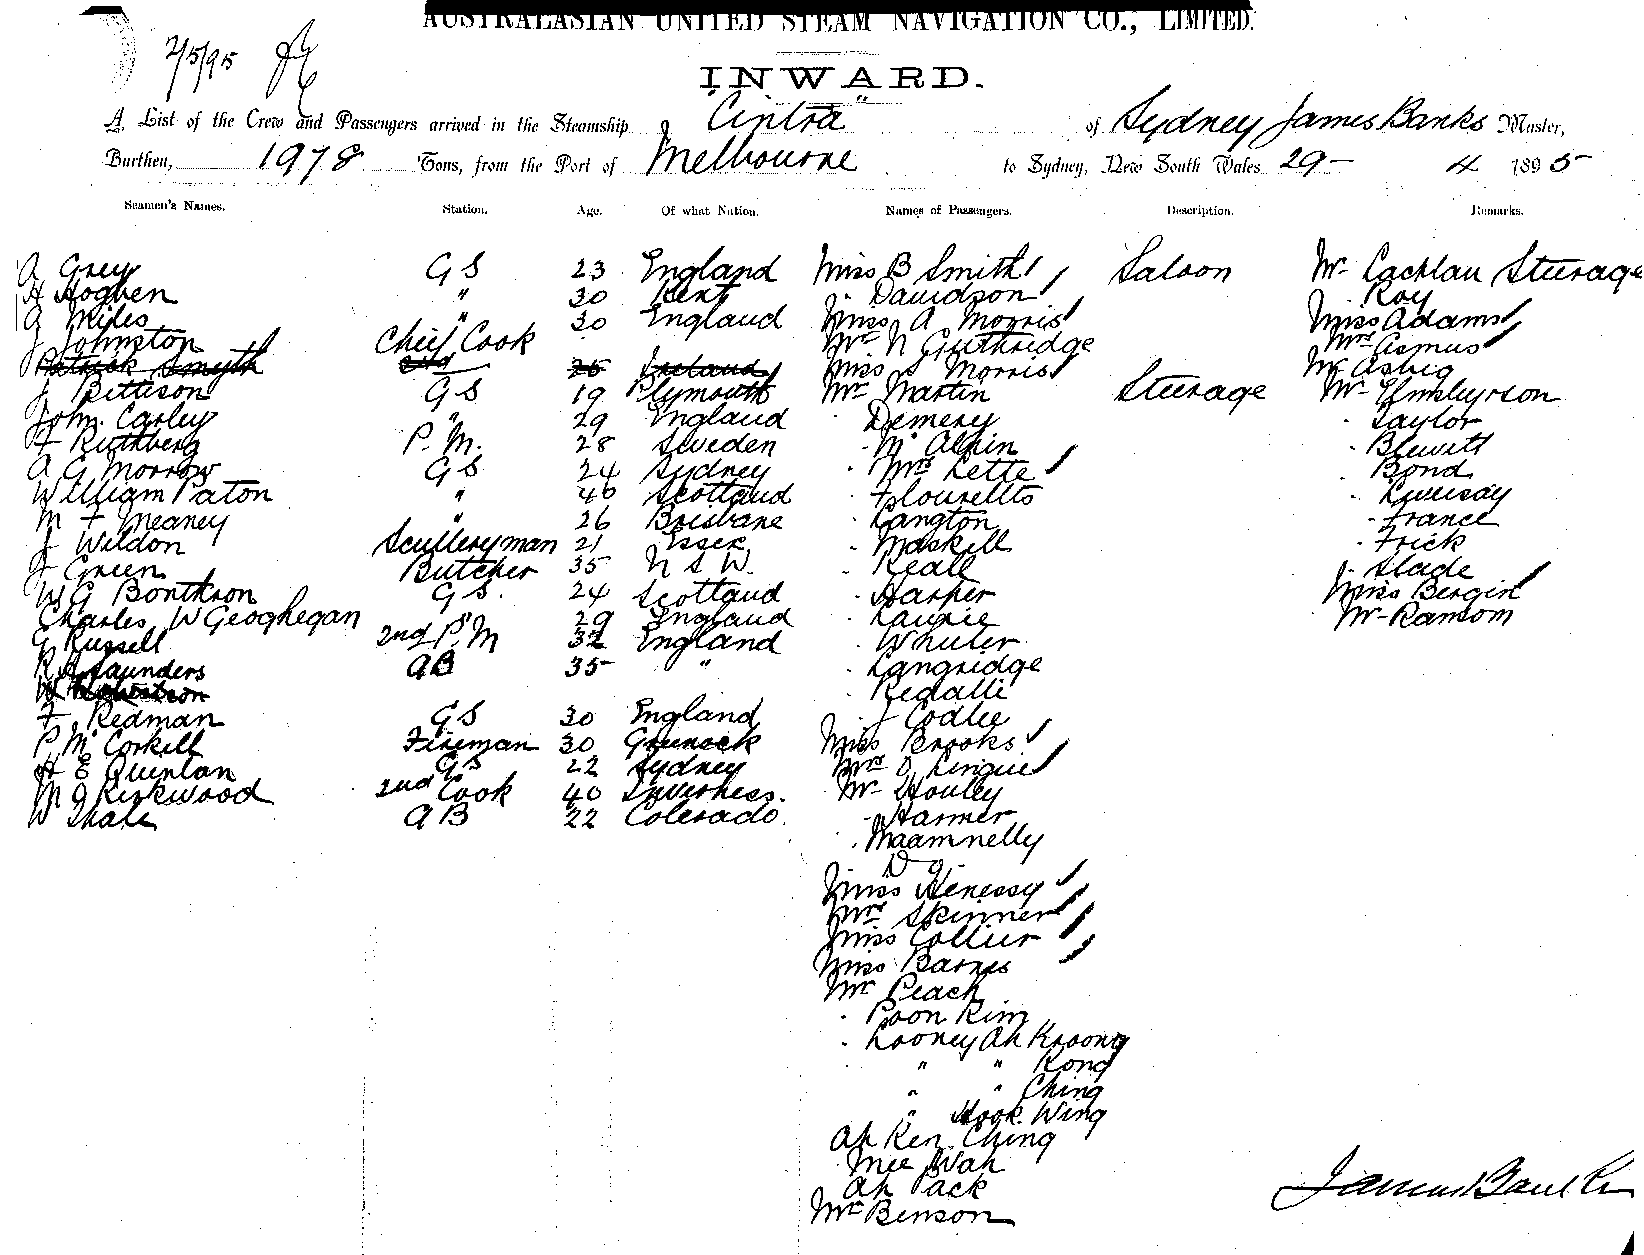 AUSTRALASIAN UNITED STEAM NAVIGATION CO., LIMITED.
2/5/95
INWARD.
A List of the Crew and Passengers arrived in the Steamship "Cintra" of Sydney James Banks Master,
Burthen, 1978 Tons, from the Port of Melbourne to Sydney, New South Wales 29- 4 1895
Seamen's Names. Station. Age. Of what Nation. Names of Passengers. Description. Remarks.
A Grey G S 23 England Miss B Smith Saloon Mr Lachlan Steerage
H Hogben " 30 Kent " Davidson " Roy
G Miles " 30 England Miss A Morris Miss Adams
J Johnston Chief Cook Mr N Guthridge Mrs Asmus
Patrick Smyth 25 Ireland Miss S Morris Mr
J Bettison G S 19 Plymouth Mr Martin Steerage Mr
John Carley " 29 England " Demery " Taylor
F Ruthberg P. M. 28 Sweden " McAlpin " Blewitt
A G Morrow G S 24 Sydney " Mrs Lette " Bond
William Paton " 46 Scotland " "
M F Meaney " 26 Brisbane " Langton " France
J Weldon Sculleryman 21 Essex " Maskill " Frick
J Green Butcher 35 N S W. " " Slade
W G Bonthron G S. 24 Scotland " Harper Miss Bergin
Charles W Geoghegan " 29 England " Laurie Mr Ransom
G Russell 2nd P. M 32 England " Wheeler
R A Saunders AB 35 " " Langridge
" Regalli
F. Redman G S 30 England J Codlie
P McCorkill Fireman 30 Greenock Miss Brooks
H E Quinlan G S 22 Sydney Mrs
M J Kirkwood 2nd Cook 40 Inverness. Mr Houley
W Thale AB 22 Colerado. " Harmer
" Maamnelly
Miss Henessy
Mrs Skinner
Miss Collier
Miss Barnes
Mr Peach
" Poon Kim
" Looney Ah Kroong
" " Kong
" " Ching
" Hook Wing
Ah Ken Ching
Mee Wah
Ah Pack
Mr Benson
James Banks